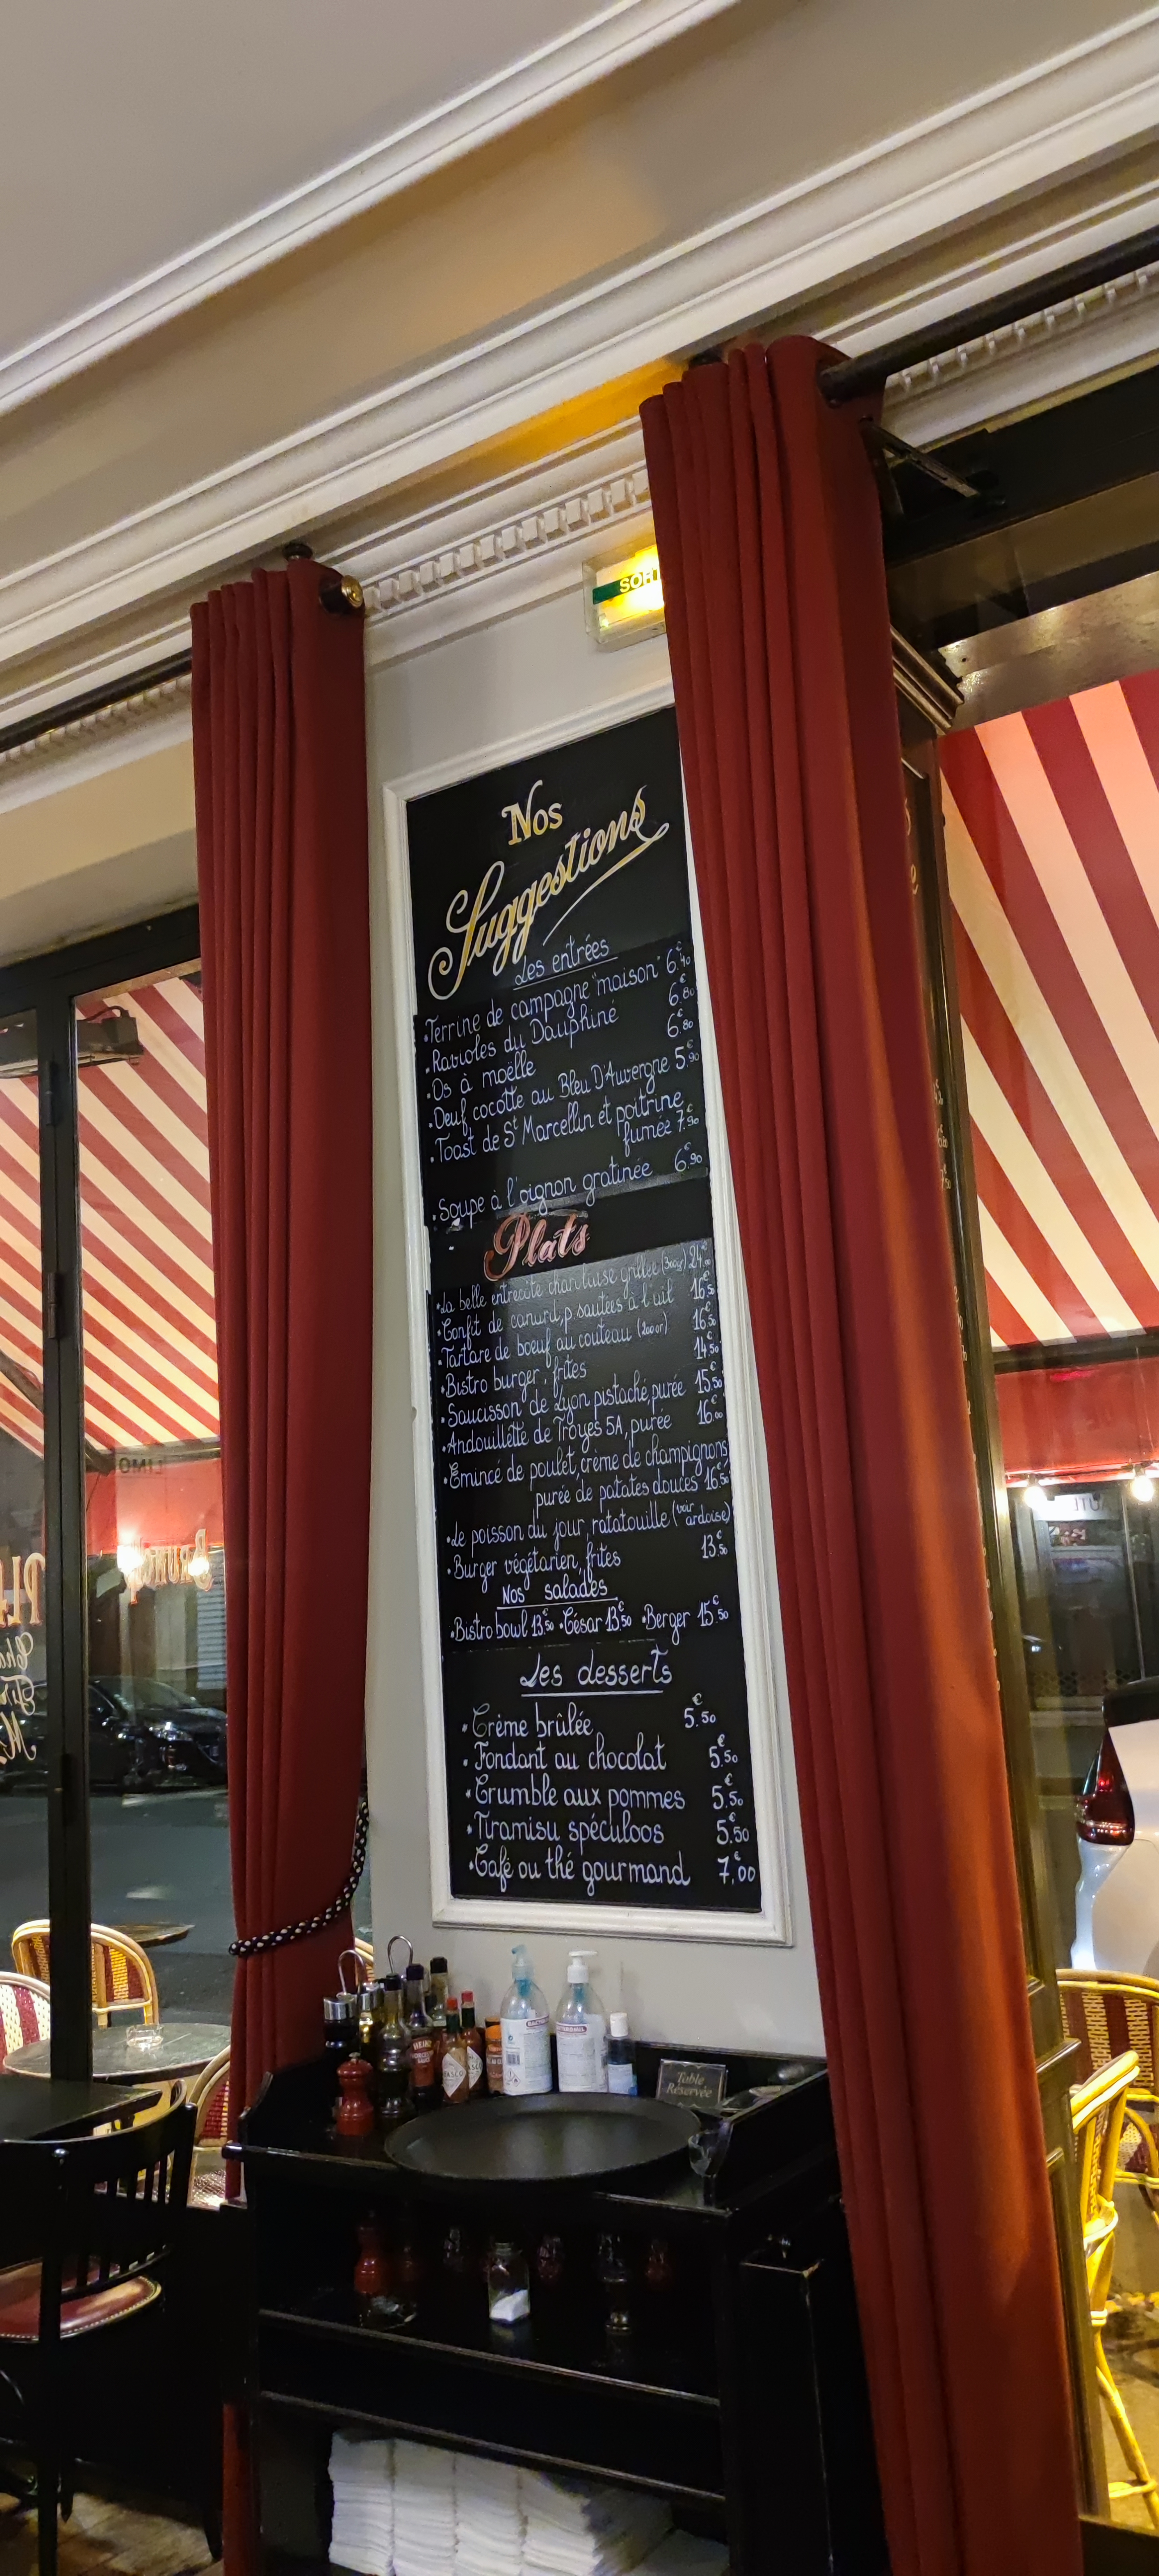 SORT
Nos
Suggestions
Les entrées
• Terrine de campagne "maison" 6€40
• Ravioles du Dauphiné 6€80
• Os à moëlle 6€80
• Oeuf cocotte au Bleu D'Auvergne 5€90
• Toast de St Marcellin et poitrine
fumée 7€90
• Soupe à l'oignon gratinée 6€90
Plats
• La belle entrecôte charolaise grillée (300gr) 24€00
• Confit de canard, p. sautées à l'ail 16€50
• Tartare de boeuf au couteau (200gr) 16€50
• Bistro burger, frites 14€50
• Saucisson de Lyon pistaché, purée 15€50
• Andouillette de Troyes 5A, purée 16€00
• Emincé de poulet, crème de champignons
purée de patates douces 16€50
• Le poisson du jour, ratatouille (voir ardoise)
• Burger végétarien, frites 13€50
Nos salades
• Bistro bowl 13€50 • César 13€50 • Berger 15€50
Les desserts
• Crème brûlée 5€50
• Fondant au chocolat 5€50
• Crumble aux pommes 5€50
• Tiramisu spéculoos 5€50
• Café ou thé gourmand 7€00
LIMO
Brunch
HEINZ
Table
Réservée